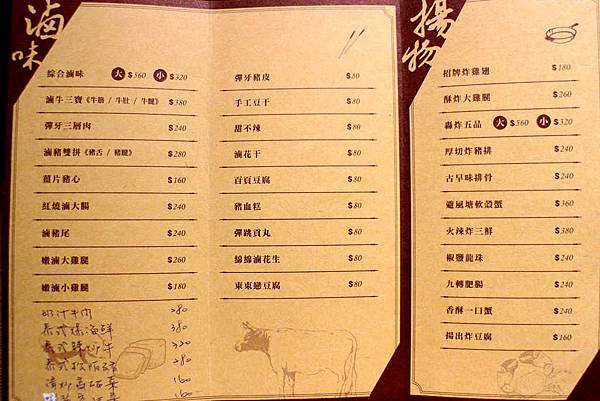 滷味
綜合滷味 大 $560 小 $320
滷牛三寶《牛筋 / 牛肚 / 牛腱》 $380
彈牙三層肉 $240
滷豬雙拼《豬舌 / 豬腱》 $280
薑片豬心 $160
紅燒滷大腸 $240
滷豬尾 $240
嫩滷大雞腿 $260
嫩滷小雞腿 $180
牛肉 280
泰式 海鮮 380
泰式 炒牛 320
泰式松阪豬 280
清炒 菜 160
160
彈牙豬皮 $80
手工豆干 $80
甜不辣 $80
滷花干 $80
百頁豆腐 $80
豬血糕 $80
彈跳貢丸 $80
綿綿滷花生 $80
東東戀豆腐 $80
揚物
招牌炸雞翅 $180
酥炸大雞腿 $260
轟炸五品 大 $560 小 $320
厚切炸豬排 $240
古早味排骨 $240
避風塘軟殼蟹 $360
火辣炸三鮮 $380
椒鹽龍珠 $240
九轉肥腸 $240
香酥一口蟹 $240
揚出炸豆腐 $160